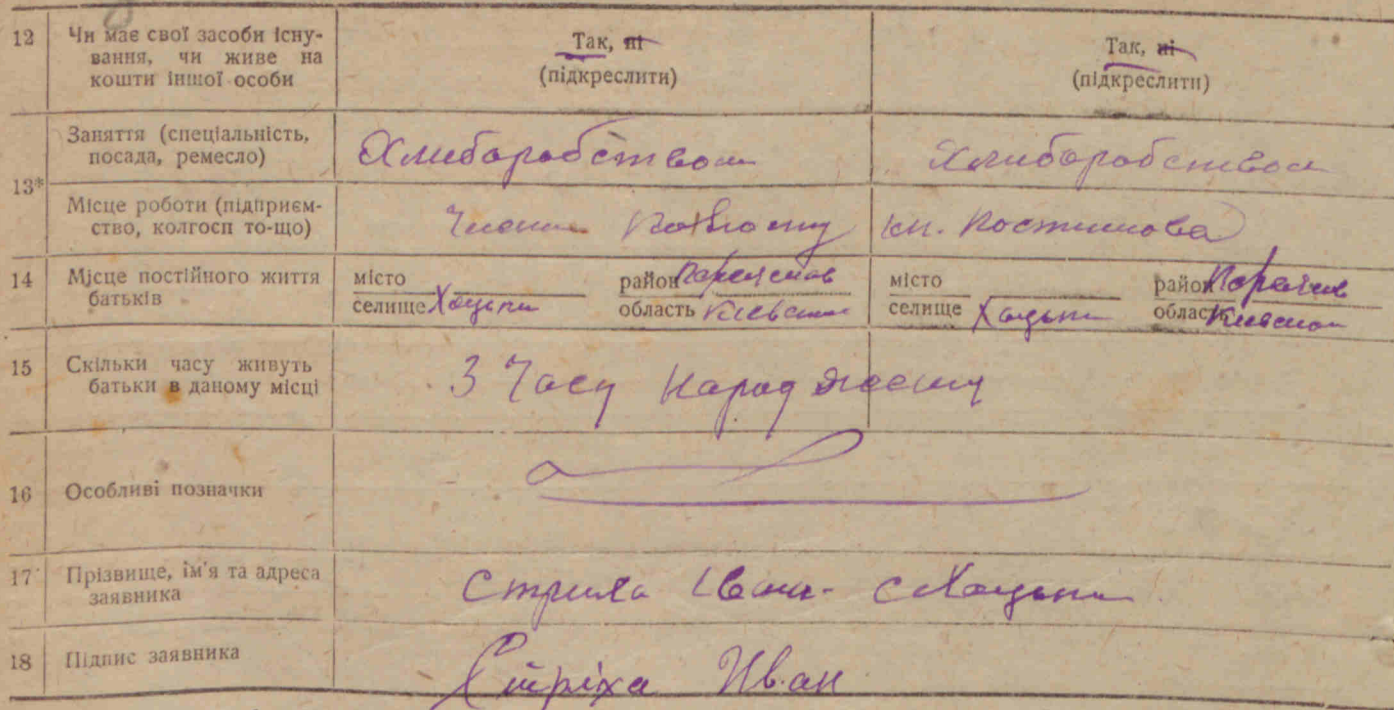 12 Чи має свої засоби існу-
вання, чи живе на
кошти іншої особи
Так, ні
(підкреслити)
Так, ні
(підкреслити)
13*
Заняття (спеціальність,
посада, ремесло)
Хлиборобством
Хлиборобством
Місце роботи (підприєм-
ство, колгосп то-що)
ім. Постишова
14 Місце постійного життя
батьків
місто
селище Хоцьки
район
область Киевском
місто
селище Хоцьки
район
область Киевском
15 Скільки часу живуть
батьки в даному місці
З Часу Народженну
16 Особливі позначки
17 Прізвище, ім'я та адреса
заявника
Стриха Иван - с Хоцьки
18 Підпис заявника
Стріха Иван